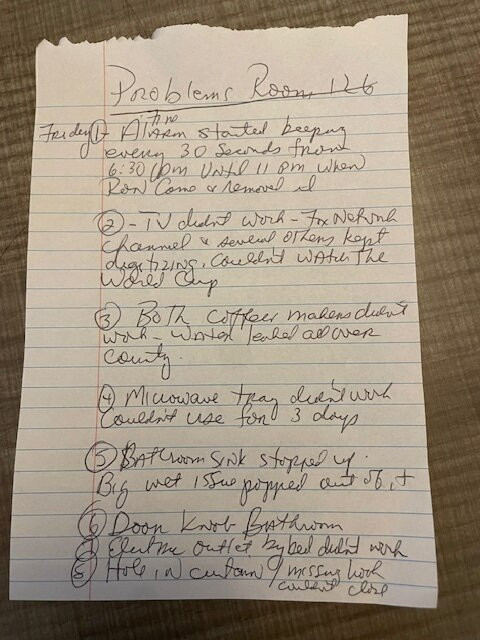 Problems Room 126
Friday 1- Fire Alarm started beeping
every 30 seconds from
6:30 pm until 11 pm when
Ron Come & removed it
2 - TV didn't work - Fox Network
channel & several others kept
digitizing. Couldn't watch the
World Cup
3 Both coffeer makers didn't
work - water leaked all over
county.
4 Microwave tray didn't work
Couldn't use for 3 days
5 Bathroom sink stopped up.
Big wet issue popped out of it
6 Door Knob Bathroom
Electric outlet by bed didn't work
Hole in curtain / missing hook
couldn't close